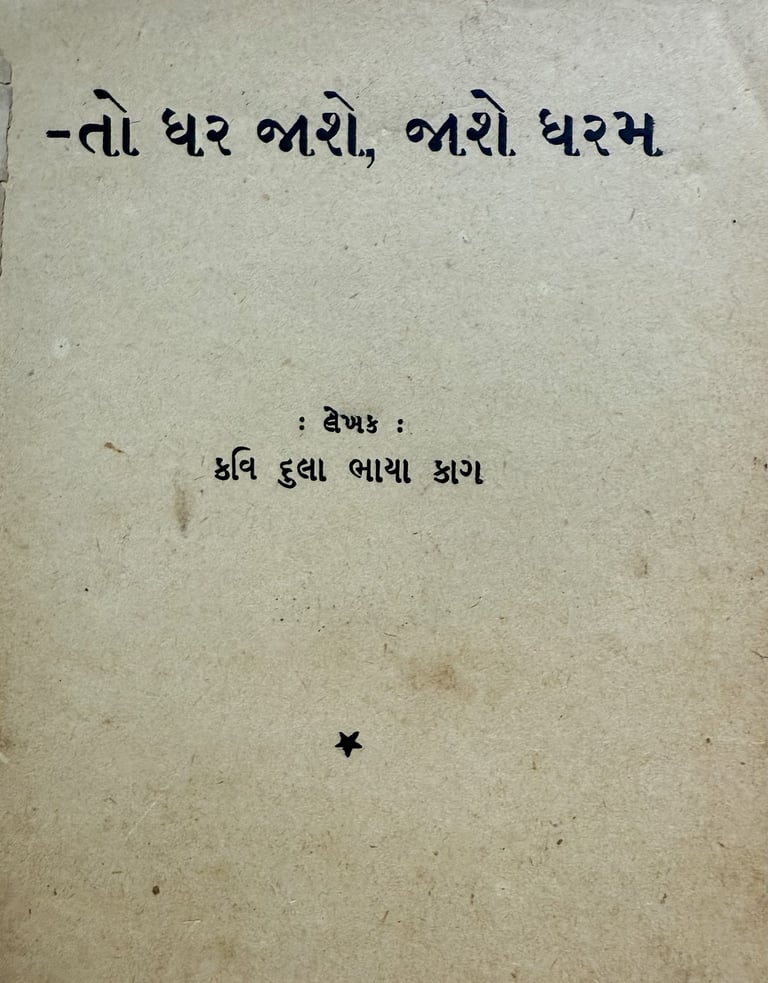 -તો ઘર જાશે, જાશે ધરમ
: લેખક :
કવિ દુલા ભાયા કાગ